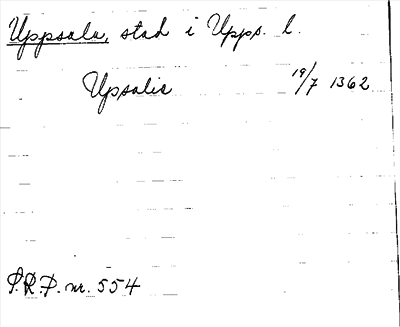 Uppsala, stad i Upps. l.
Upsalie 19/7 1362
P.R.P. nr. 554